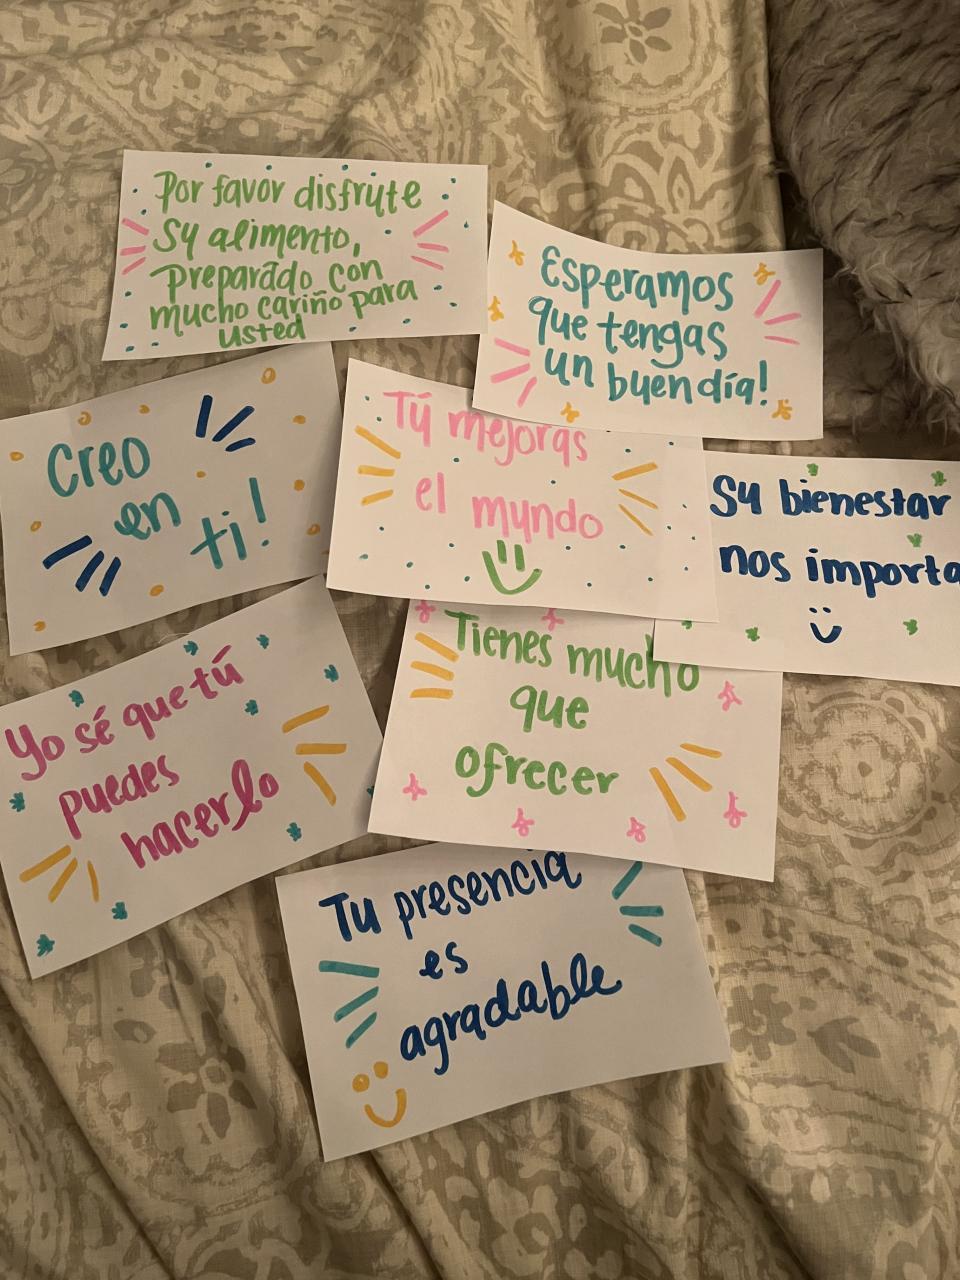 Por favor disfrute
Su alimento,
preparado con
mucho cariño para
usted
Esperamos
que tengas
un buen día!
Creo
en
ti!
Tú mejoras
el mundo
Su bienestar
nos importa
Yo sé que tú
puedes
hacerlo
Tienes mucho
que
ofrecer
Tu presencia
es
agradable